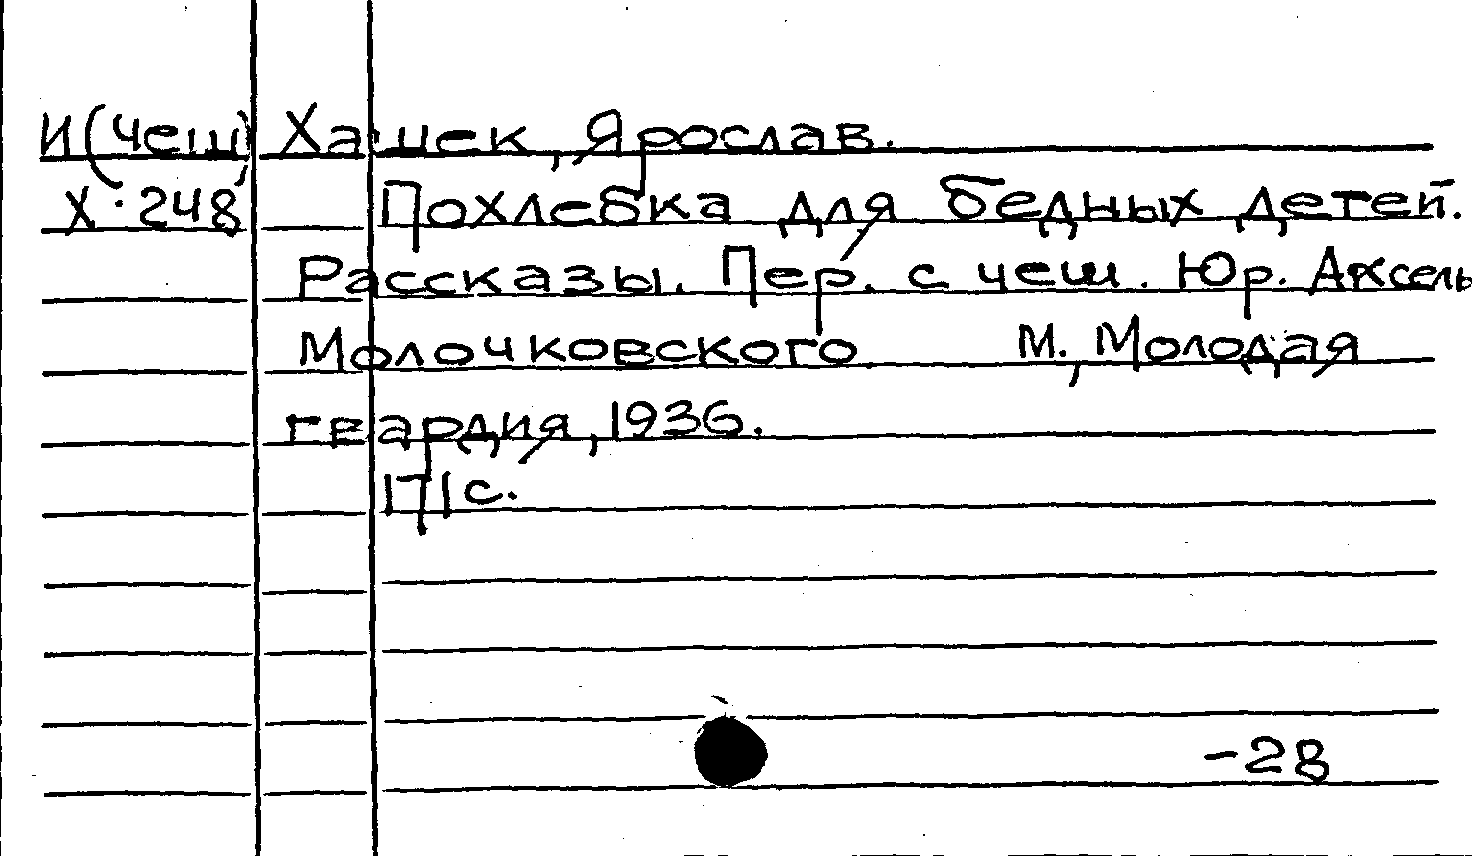 И(чеш) Хашек, Ярослав.
Х-248 Похлебка для бедных детей.
Рассказы. Пер. с чеш. Юр. Аксель
Молочковского М., Молодая
гвардия, 1936.
171с.
-28